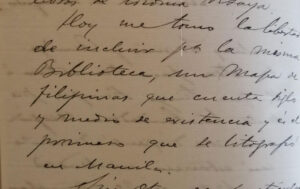 de idioma Visaya.
Hoy me tomo la libertad
de incluir pª la misma
Biblioteca, un Mapa de
filipinas que cuenta siglo
y medio de existencia y es el
primero que se litografió
en Manila.